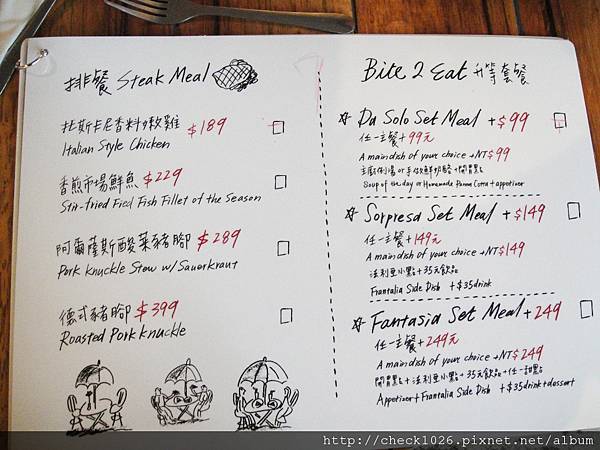 排餐 Steak Meal
托斯卡尼香料嫩雞 $189
Italian Style Chicken
香煎市場鮮魚 $229
Stir-fried Fied Fish Fillet of the Season
阿爾薩斯酸菜豬腳 $289
Pork Knuckle Stow w/ Sauerkraut
德式豬腳 $399
Roasted Pork Knuckle
Bite 2 Eat 升等套餐
☆ Da Solo Set Meal +$99
任一主餐+99元
A main dish of your choice +NT$99
主廚例湯 or 手做鮮奶酪+開胃點
Soup of the day or Homemade Panna Cotta + appetizer
☆ Sorpresa Set Meal +$149
任一主餐+149元
A main dish of your choice +NT$149
法利亞小點+35元飲品
Frantalia Side Dish +$35drink
☆ Fantasia Set Meal +249
任一主餐+249元
A main dish of your choice +NT$249
開胃點+法利亞小點+35元飲品+任一甜點
Appetizer+Frantalia Side Dish +$35drink+dessart
http://check1026.pixnet.net/album